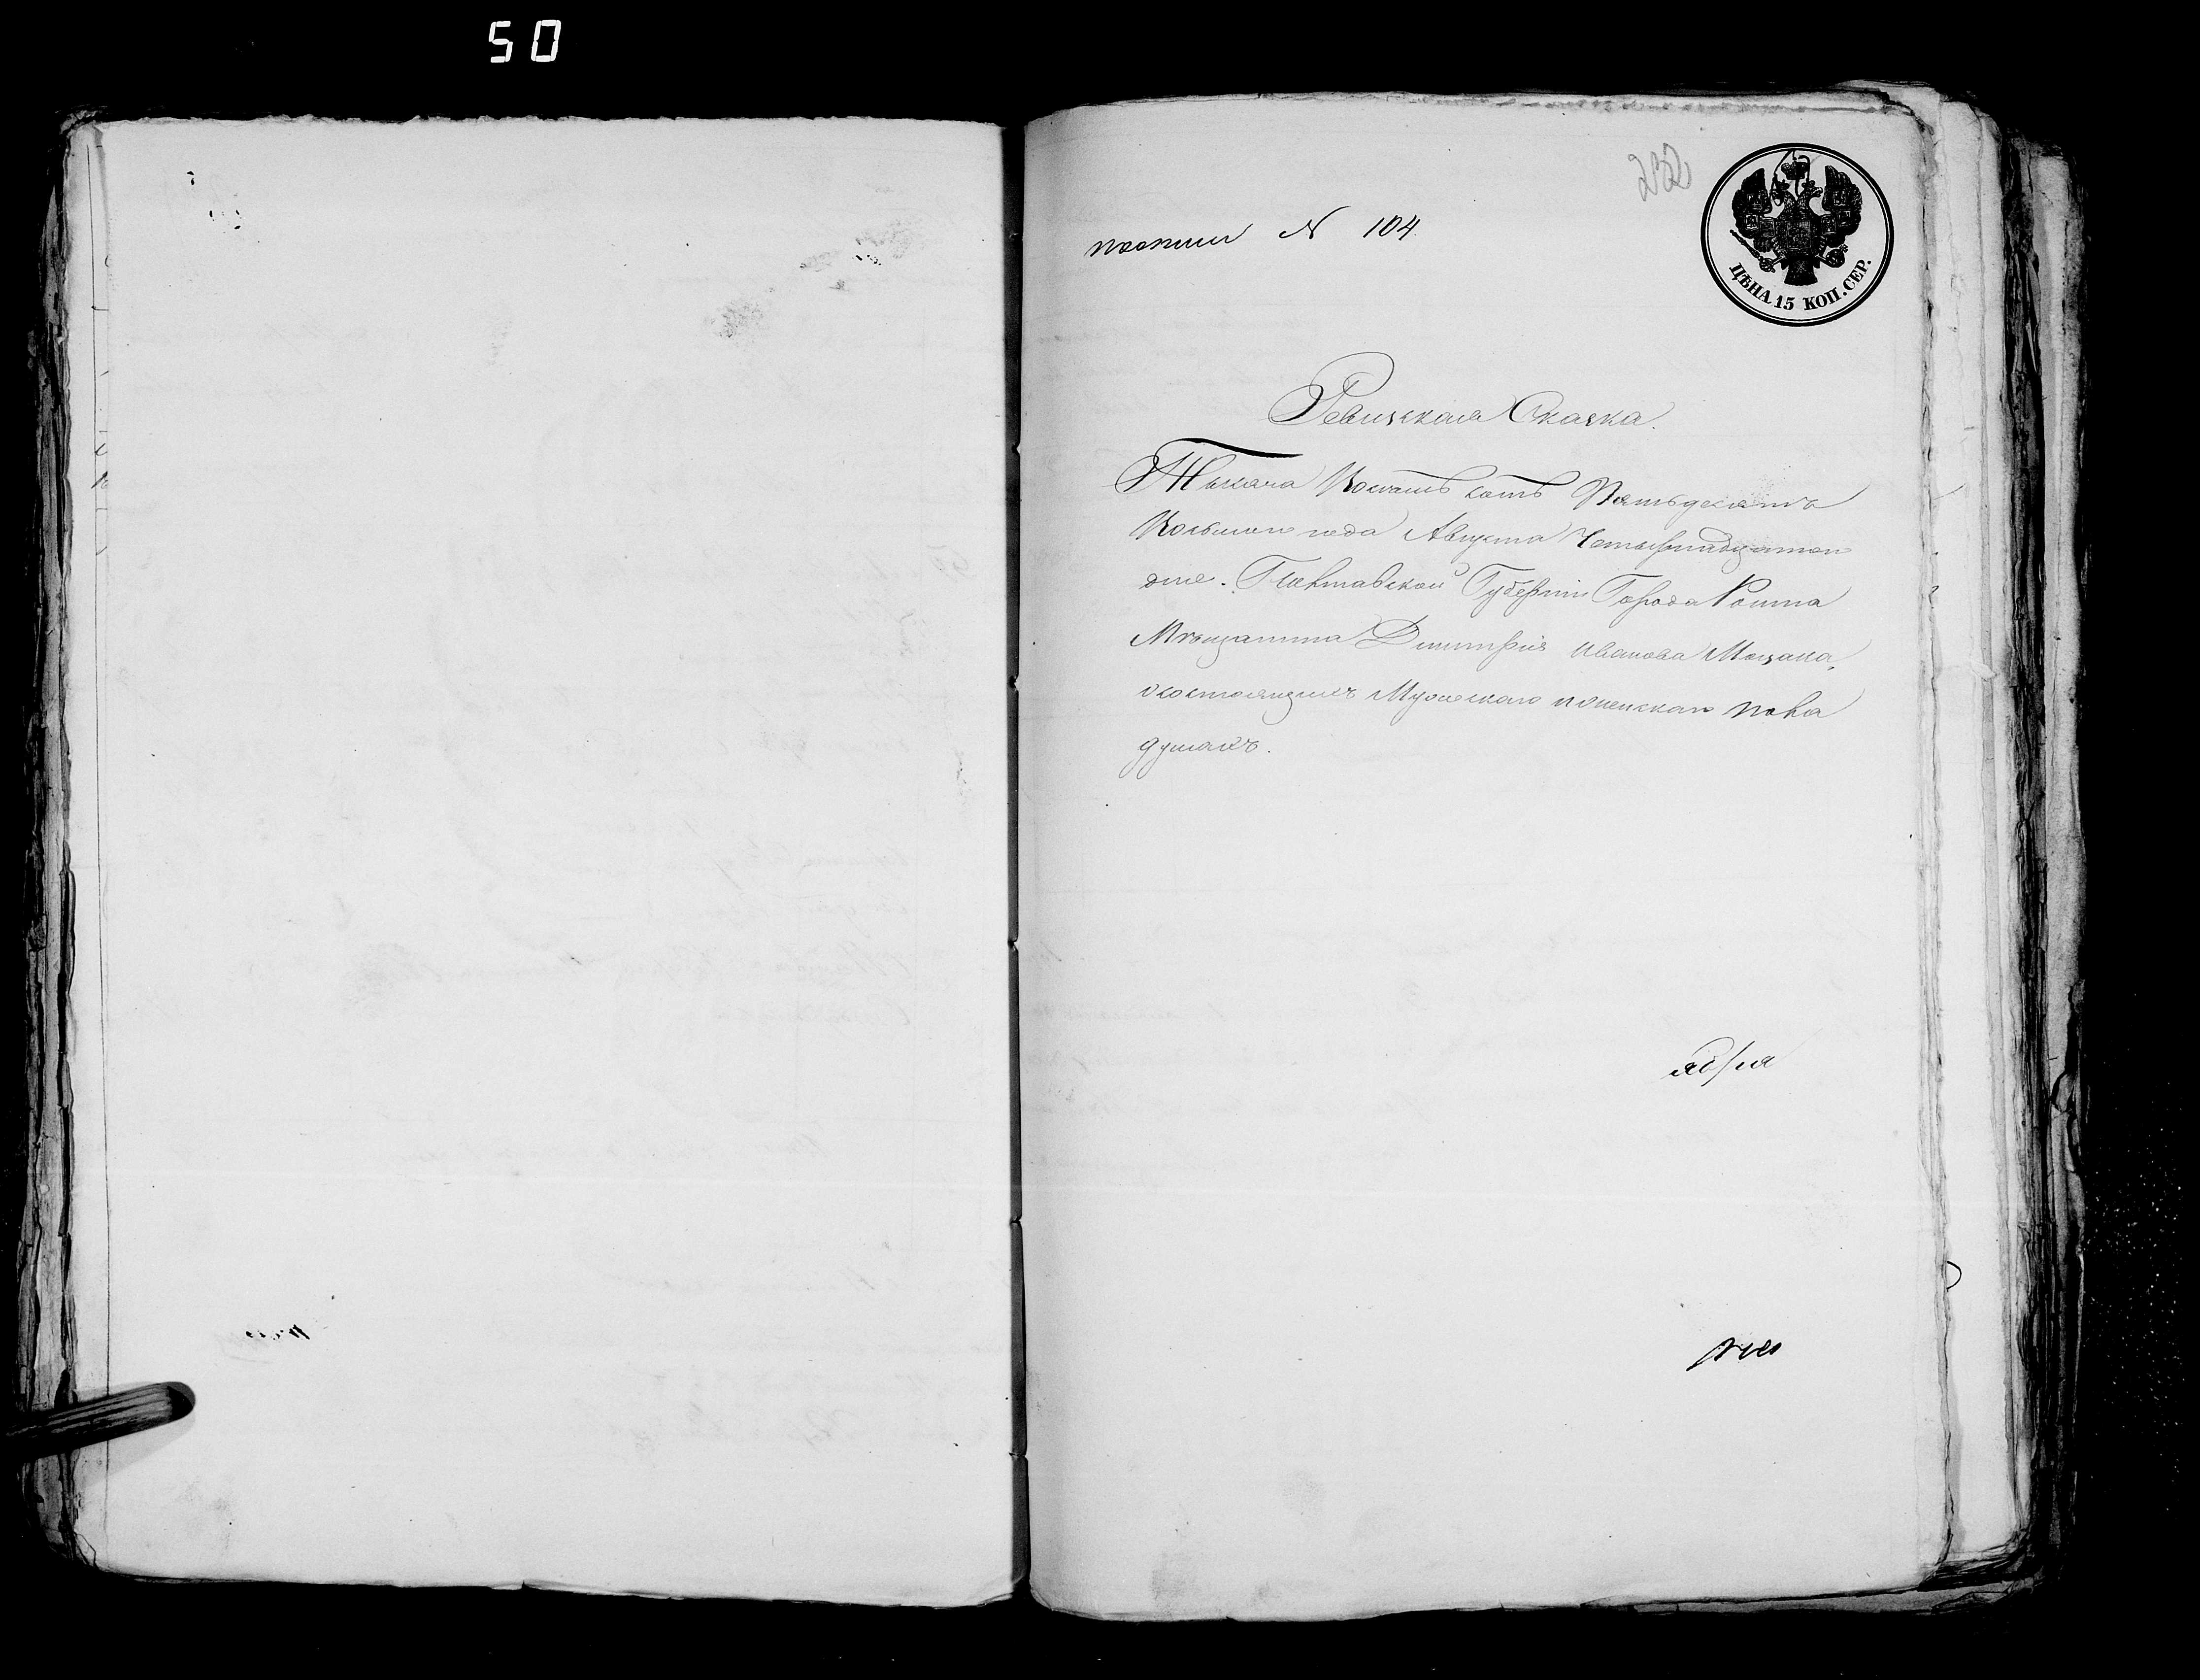 50
232
N 104
ЦѢНА 15 КОП. СЕР.
Ревизская Сказка.
Тысяча Восемь сотъ Пятьдесятъ
Восьмого года Августа Четырнадцатого
дня. Полтавской Губерніи Города Ромна
Мѣщанина Димитрія Иванова
о состоящихъ Мужескаго и женскаго пола
душахъ.